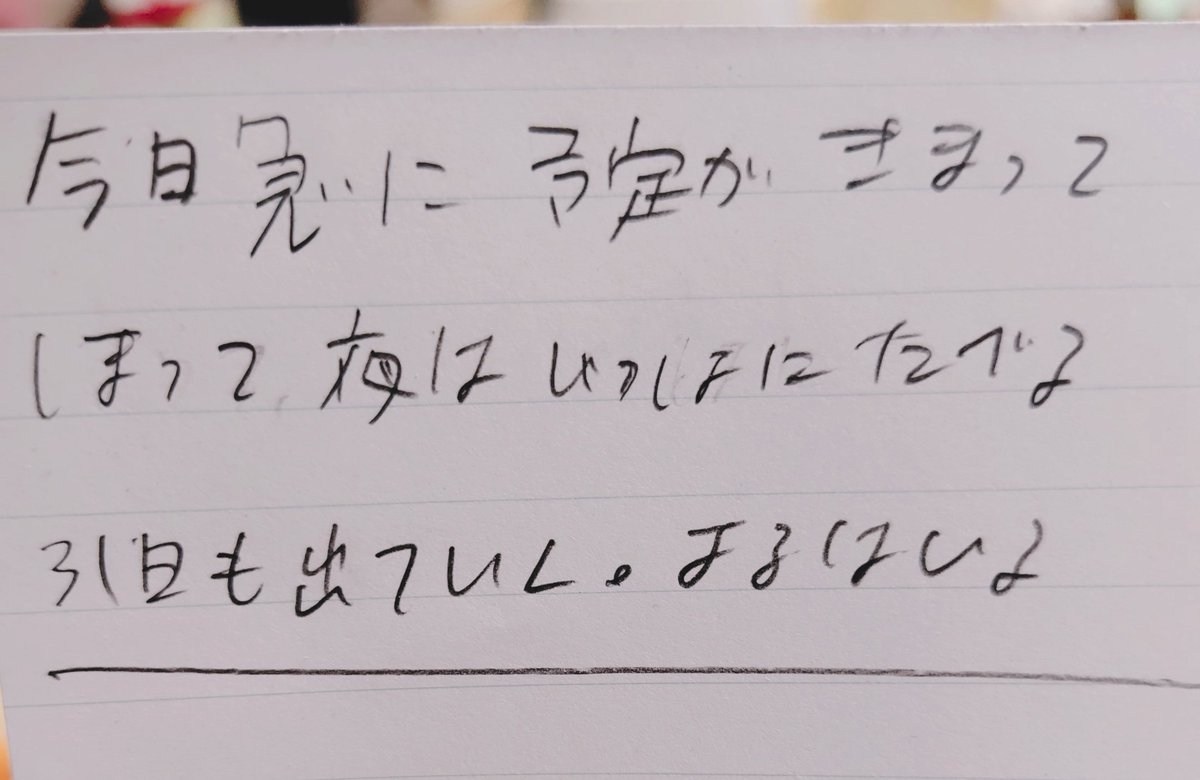 今日急に予定がきまって
しまって夜はいっしょにたべる
31日も出ていく。よるはいる